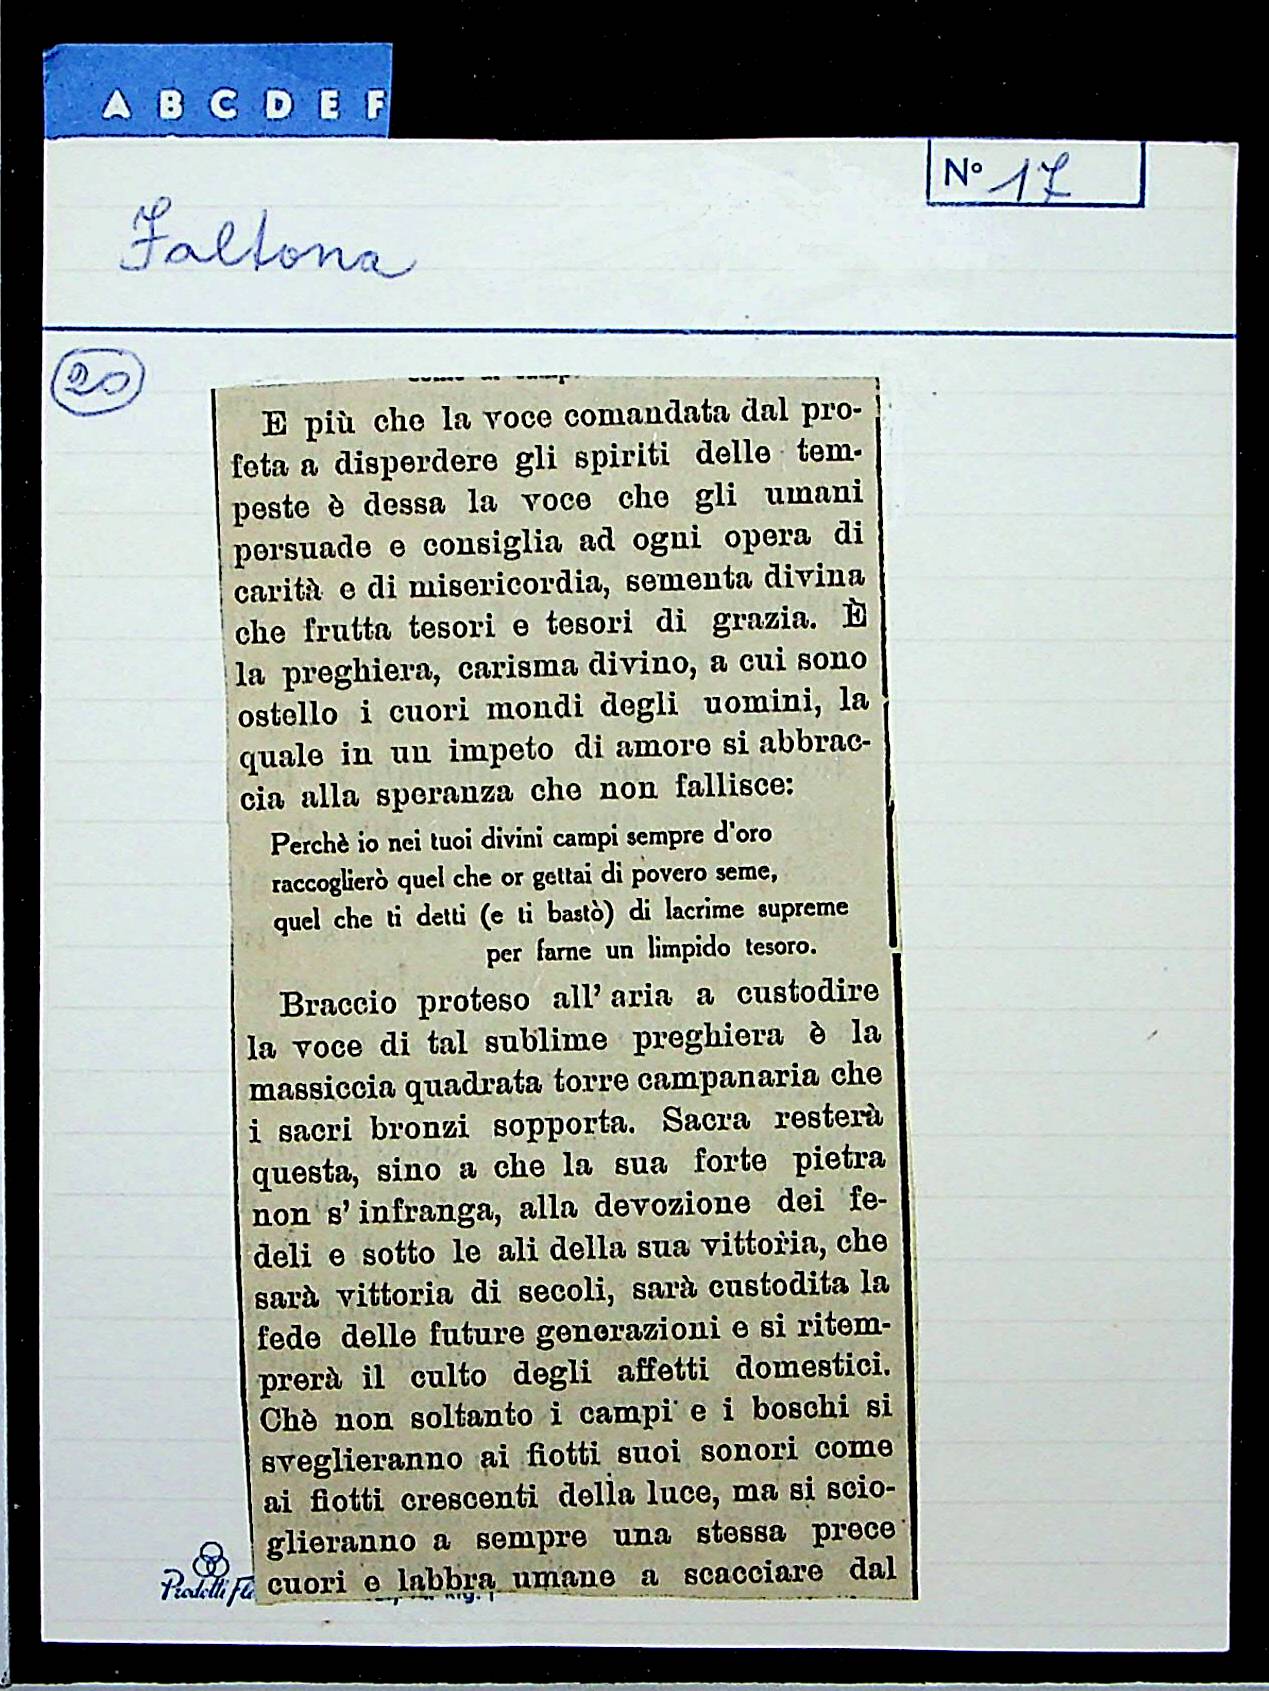 A B C D E F
N° 17
Faltona
20
E più che la voce comandata dal pro-
feta a disperdere gli spiriti delle tem-
peste è dessa la voce che gli umani
persuade e consiglia ad ogni opera di
carità e di misericordia, sementa divina
che frutta tesori e tesori di grazia. È
la preghiera, carisma divino, a cui sono
ostello i cuori mondi degli uomini, la
quale in un impeto di amore si abbrac-
cia alla speranza che non fallisce:
Perchè io nei tuoi divini campi sempre d'oro
raccoglierò quel che or gettai di povero seme,
quel che ti detti (e ti bastò) di lacrime supreme
per farne un limpido tesoro.
Braccio proteso all' aria a custodire
la voce di tal sublime preghiera è la
massiccia quadrata torre campanaria che
i sacri bronzi sopporta. Sacra resterà
questa, sino a che la sua forte pietra
non s' infranga, alla devozione dei fe-
deli e sotto le ali della sua vittoria, che
sarà vittoria di secoli, sarà custodita la
fede delle future generazioni e si ritem-
prerà il culto degli affetti domestici.
Chè non soltanto i campi e i boschi si
sveglieranno ai fiotti suoi sonori come
ai fiotti crescenti della luce, ma si scio-
glieranno a sempre una stessa prece
cuori e labbra umane a scacciare dal